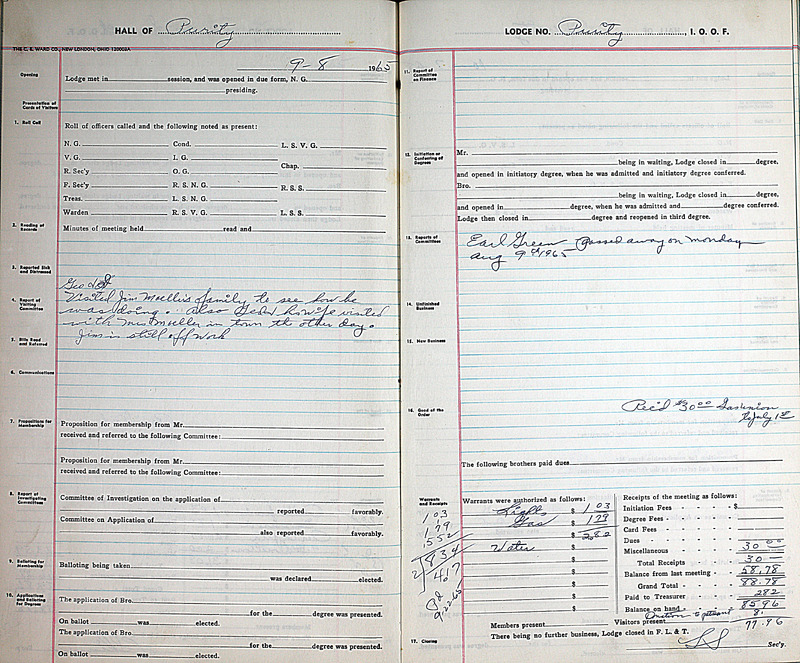 HALL OF Purity
THE C. E. WARD CO., NEW LONDON, OHIO
9-8 1965
Opening
Lodge met in session, and was opened in due form, N. G.
presiding.
Presentation of Cards of Visitors
1. Roll Call
Roll of officers called and the following noted as present:
N. G. Cond. L. S. V. G.
V. G. I. G.
Chap.
R. Sec'y O. G.
F. Sec'y R. S. N. G. R. S. S.
Treas. L. S. N. G.
Warden R. S. V. G. L. S. S.
2. Reading of Records
Minutes of meeting held read and
3. Reported Sick and Distressed
4. Report of Visiting Committee
Visited Jim Moeller's family to see how he
was doing. also his wife visited
with Mrs Moeller in town the other day.
Jim is still off work
5. Bills Read and Referred
6. Communications
7. Propositions for Membership
Proposition for membership from Mr.
received and referred to the following Committee:
Proposition for membership from Mr.
received and referred to the following Committee:
8. Report of Investigating Committees
Committee of Investigation on the application of
reported favorably.
Committee on Application of
also reported favorably.
9. Balloting for Membership
Balloting being taken
was declared elected.
10. Applications and Balloting for Degrees
The application of Bro.
for the degree was presented.
On ballot was elected.
The application of Bro.
for the degree was presented.
On ballot was elected.
LODGE NO. Purity, I. O. O. F.
11. Report of Committee on Finance
12. Initiation or Conferring of Degrees
Mr.
being in waiting, Lodge closed in degree,
and opened in initiatory degree, when he was admitted and initiatory degree conferred.
Bro.
being in waiting, Lodge closed in degree,
and opened in degree, when he was admitted and degree conferred.
Lodge then closed in degree and reopened in third degree.
13. Reports of Committees
Earl Green passed away on Monday
Aug 9th 1965
14. Unfinished Business
15. New Business
16. Good of the Order
Rec'd $30.00
July 1st
The following brothers paid dues
Warrants and Receipts
Warrants were authorized as follows:
Lights $ 1 03
Gas $ 1 79
$ 2 82
Water $
$
$
$
$
$
1 03
1 79
5 52
2 834
4 17
Pd
9-22-65
Receipts of the meeting as follows:
Initiation Fees $
Degree Fees
Card Fees
Dues
Miscellaneous 30 00
Total Receipts 30 —
Balance from last meeting 58.78
Grand Total 88.78
Paid to Treasurer 282
Balance on hand 85 96
8.
77.96
Members present Visitors present
17. Closing
There being no further business, Lodge closed in F. L. & T.
Sec'y.